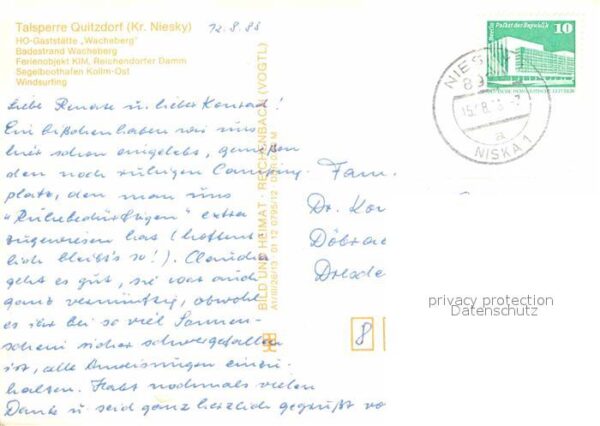 Talsperre Quitzdorf (Kr. Niesky)
HO-Gaststätte „Wacheberg"
Badestrand Wacheberg
Ferienobjekt KIM, Reichendorfer Damm
Segelboothafen Kollm-Ost
Windsurfing
12.8.86
Liebe Renate u. lieber Konrad!
Ein bißchen haben wir uns
hier schon eingelebt, genießen
den noch ruhigen Camping-
platz, den man uns
"Ruhebedürftigen" extra
zugewiesen hat (hoffent-
lich bleibt's so!). Claudia
geht es gut, sie war auch
ganz vernünftig, obwohl
es ihr bei so viel Sonnen-
schein sicher schwergefallen
ist, alle Anweisungen einzu-
halten. Habt nochmals vielen
Dank u seid ganz herzlich gegrüßt vo
BILD UND HEIMAT · REICHENBACH (VOGTL)
A1/III/26/13 01 12 0795/12
Fam
Dr. Kon
Döbra
Dresde
8
Berlin, Palast der Republik
10
DEUTSCHE DEMOKRATISCHE REPUBLIK
NIESKY
89
a
NISKA 1
privacy protection
Datenschutz